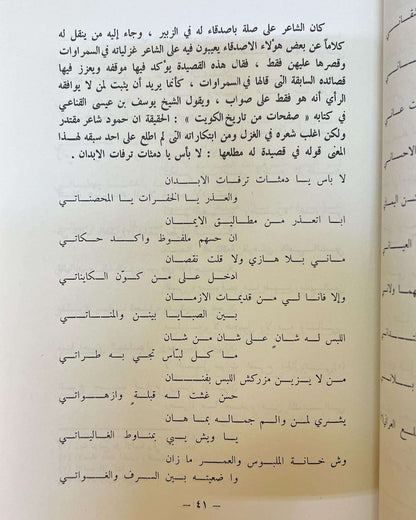 كان الشاعر على صلة باصدقاء له في الزبير ، وجاء إليه من ينقل له
كلاماً عن بعض هؤلاء الاصدقاء يعيبون فيه على الشاعر غزلياته في السمراوات
وقصرها عليهن فقط ، فقال هذه القصيدة يؤكد فيها موقفه ويعزز فيها
قصائده السابقة التى قالها في السمراوات ، كأنما يريد أن يثبت لمن لا يوافقه
الرأي أنه هو فقط على صواب ، ويقول الشيخ يوسف بن عيسى القناعي
في كتابه « صفحات من تاريخ الكويت » : الحقيقة ان حمود شاعر مقتدر
ولكن اغلب شعره في الغزل ومن ابتكاراته الى لم اطلع على احد سبقه لهذا
المعنى قوله في قصيدة له مطلعها : لا بأس يا دمثات ترفات الابدان .
لا باس يا دمثات ترفات الابدان
والعذر يا الخفرات يا المحصناتي
ابا اتعذر من مطاليق الايمان
ان حسهم ملفوظ واكد حكاتي
ماني بلا هازي ولا قلت نقصان
ادخل على من كوّن الكايناتي
والا فانا لي من قديمات الازمان
بين الصبايا بينن والمناتي
اللبس له شانٍ على شان من شان
ما كل لبّاس تجي به طراتي
من لا يزين مزركش اللبس بفنان
حسن غشت له قبلةٍ وازهواتي
يشري لمن والم جماله بما هان
يا ويش يبي بمناوط الغالياتي
وش خانة الملبوس والعمر ما زان
وا ضعيته بين السرف والغواتي
— ٤١ —
قاني
ـت عـاني
الاحساني
ـن اليمني
العيني
ـهما ولاني
ـتدابي
بـلاني